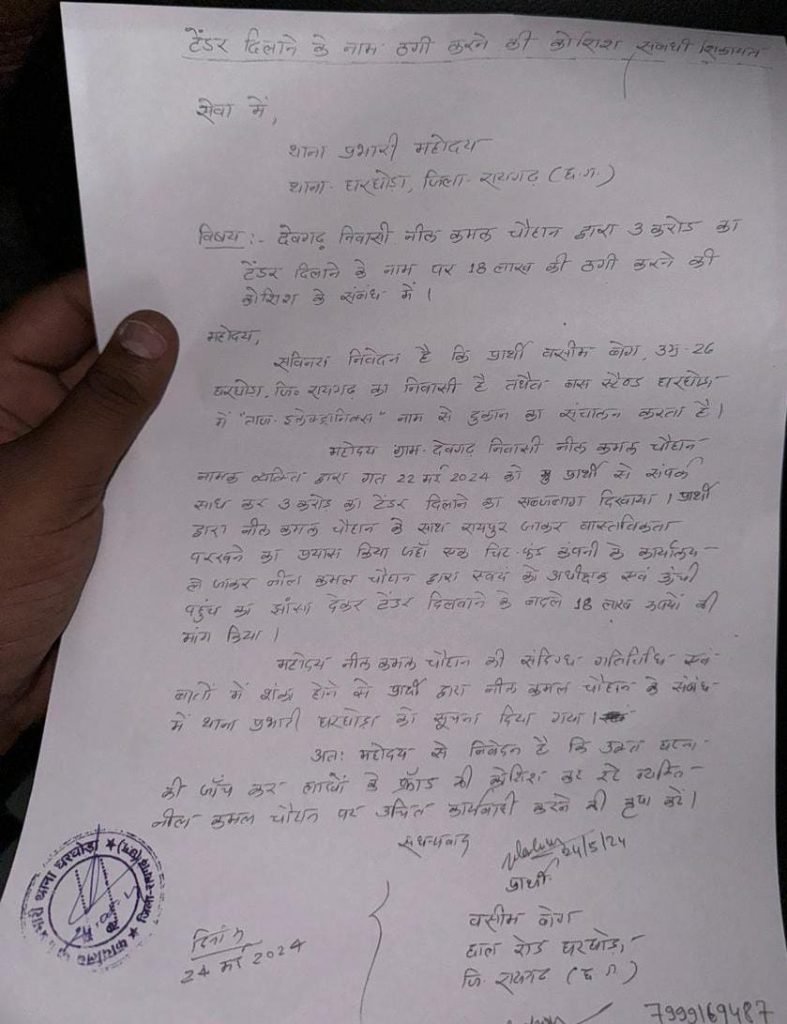 टेंडर दिलाने के नाम ठगी करने की कोशिश संबंधी शिकायत
सेवा में,
थाना प्रभारी महोदय
थाना घरघोड़ा, जिला- रायगढ़ (छ.ग.)
विषय :- देवगढ़ निवासी नील कमल चौहान द्वारा 3 करोड का
टेंडर दिलाने के नाम पर 18 लाख की ठगी करने की
कोशिश के संबंध में ।
महोदय,
सविनय निवेदन है कि प्रार्थी वसीम बेग, उम्र-26
घरघोड़ा, जि० रायगढ़ का निवासी है तथैव बस स्टैण्ड घरघोड़ा
में "ताज-इलेक्ट्रानिक्स" नाम से दुकान का संचालन करता है।
महोदय ग्राम- देवगढ़ निवासी नील कमल चौहान
नामक व्यक्ति द्वारा गत 22 मई 2024 को प्रार्थी से संपर्क
साध कर 3 करोड का टेंडर दिलाने का सब्जबाग दिखाया । प्रार्थी
द्वारा नील कमल चौहान के साथ रायपुर जाकर वास्तविकता
परखने का प्रयास किया जहाँ एक चिट-फंड कंपनी के कार्यालय
ले जाकर नील कमल चौहान द्वारा स्वयं को अधीक्षक एवं ऊंची
पहुंच का झांसा देकर टेंडर दिलवाने के बदले 18 लाख रुपयों की
मांग किया ।
महोदय नील कमल चौहान की संदिग्ध गतिविधि एवं
बातों में शंका होने से प्रार्थी द्वारा नील कमल चौहान के संबंध
में थाना प्रभारी घरघोड़ा को सूचना दिया गया ।
अतः महोदय से निवेदन है कि उक्त घटना
की जाँच कर लाखों के फ्रॉड की कोशिश कर रहे व्यक्ति
नील कमल चौहान पर उचित कार्यवाही करने की कृपा करें।
सधन्यवाद
24/5/24
प्रार्थी
वसीम बेग
हाल रोड घरघोड़ा
जि. रायगढ़ (छ.ग.)
दिनांक
24 मई 2024
7999169487
थाना घरघोड़ा